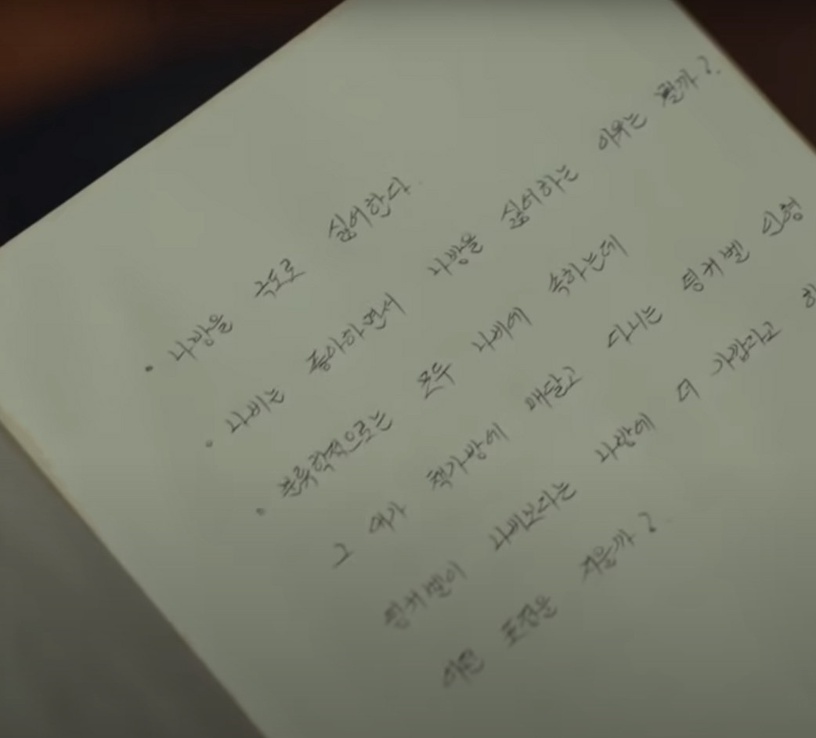 • 나방을 극도로 싫어한다.
• 나비는 좋아하면서 나방을 싫어하는 이유는 뭘까?
• 분류학적으로는 모두 나비에 속하는데
그 애가 책가방에 매달고 다니는 팅커벨 인형
팅커벨이 나비보다는 나방에 더 가깝다고 하
어떤 표정을 지을까?